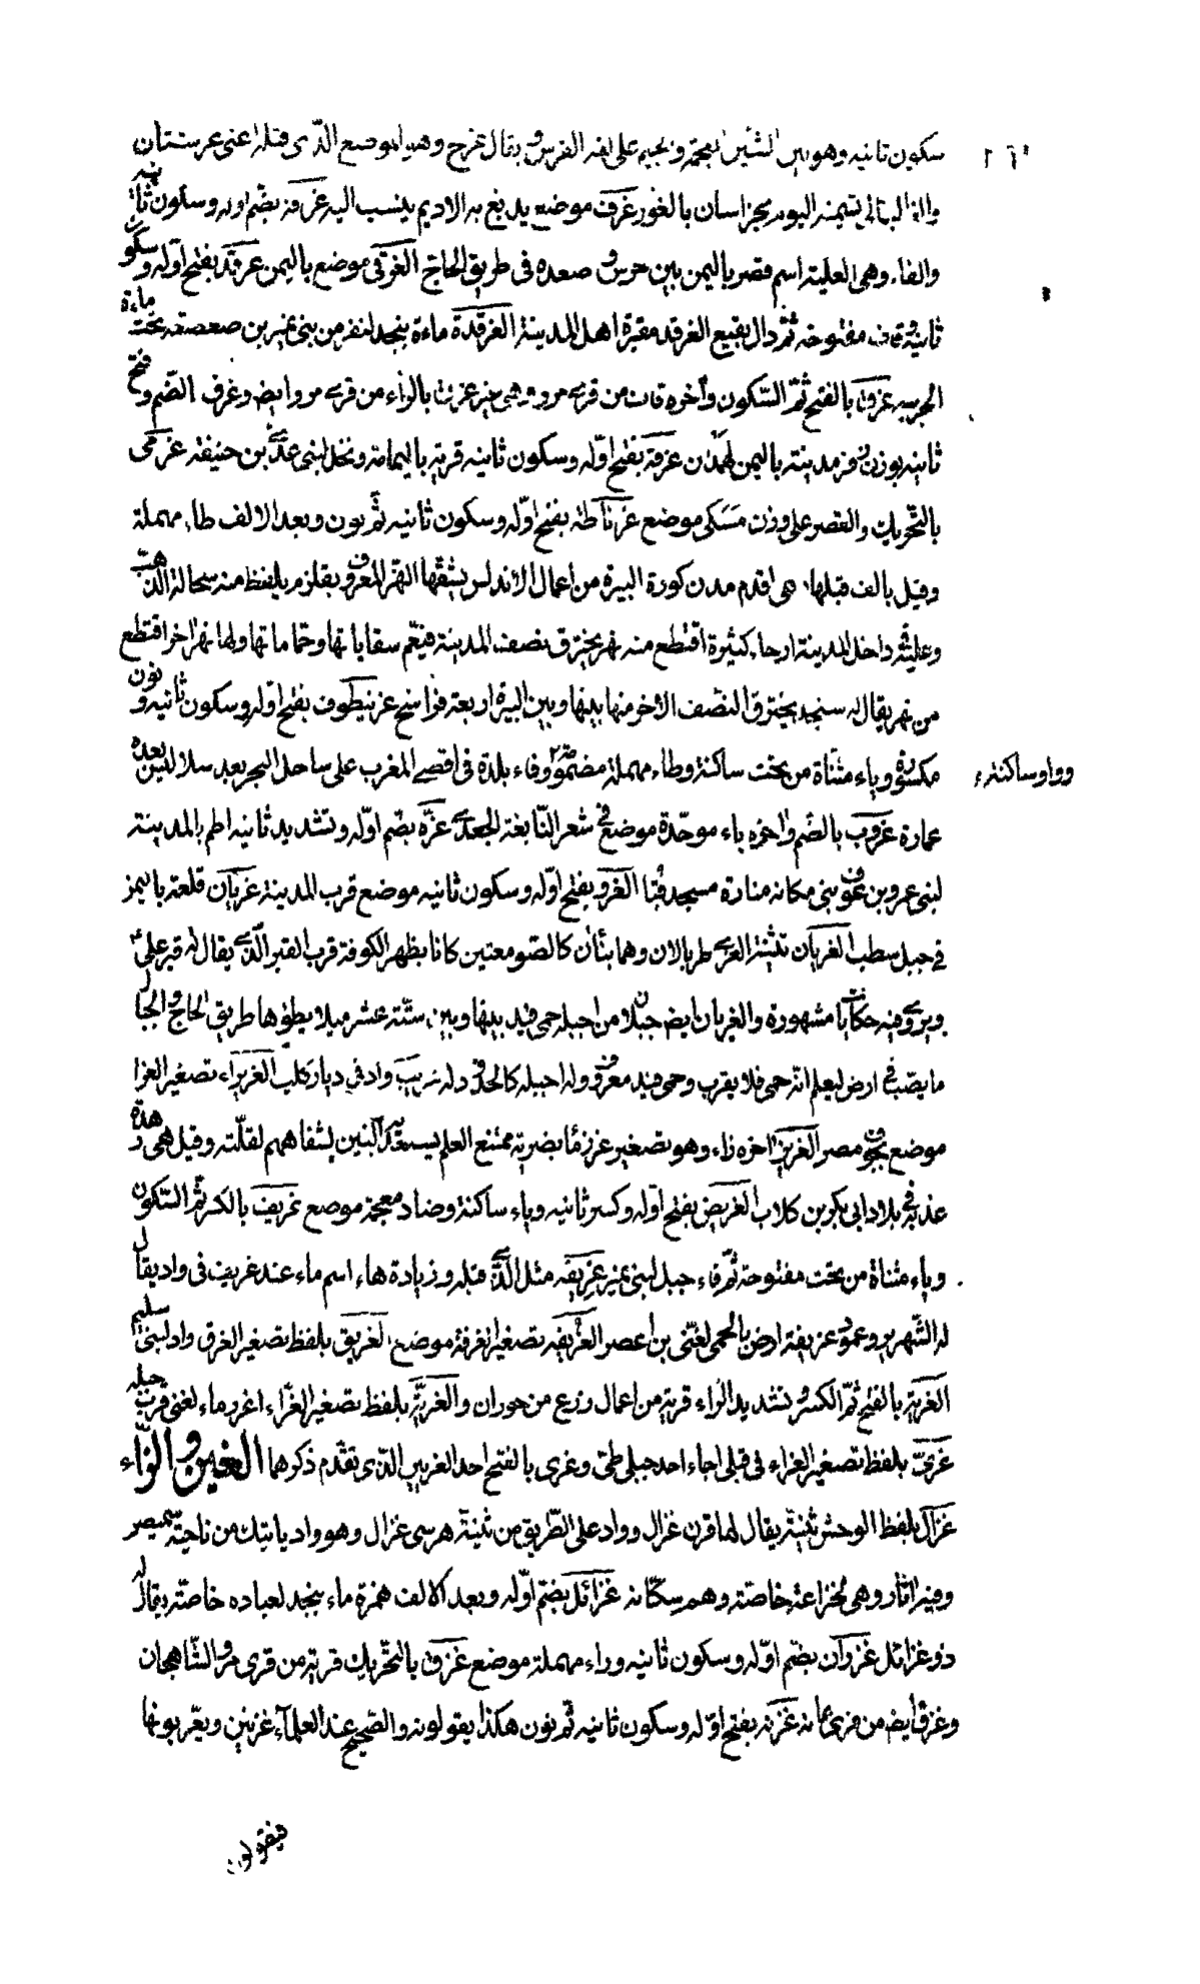 سكون ثانيه وهو بين الشين المعجمة والجيم على لغة الفرس ويقال غرج وهو الموضع الذى قبله اعنى غرستان
والذى اليوم بخراسان بالغور غرف موضع يدبغ به الاديم ينسب اليه غرفة بضم اوله وسكون ثانيه
والفاء وهى العلية اسم قصر باليمن بين حرس و صعده فى طريق الحاج الغرقى موضع باليمن غرقد بفتح اوله وسكون
ثانيه وقاف مفتوحة ثم دال بقيع الغرقد مقبرة اهل المدينة الغرقدة ماءة بنجد لنفر من بنى نمير بن صعصعة تحت ماءة
الجريب غرق بالفتح ثم السكون وآخره قاف من قرى مرو وهى غير غزق بالزاء من قرى مرو ايض وغرق الضم وفتح
ثانيه بوزن زفر مدينة باليمن لهمدان غرقة بفتح اوله وسكون ثانيه قرية باليمامة ونخل لبنى عدى بن حنيفة غرمى
بالتحريك والقصر على وزن مسكى موضع غرناطة بفتح اوله وسكون ثانيه ثم نون وبعد الالف طاء مهملة
وقيل بالف قبلها هى اقدم مدن كورة البيرة من اعمال الاندلس يشقها النهر المعروف بقلزم يلفظ منه سحالة الذهب
وعليه داخل المدينة ارحاء كثيرة اقتطع منه نهر يخترق نصف المدينة فيعم سقاياتها وحماماتها ولها نهر اخر اقتطع
من نهر يقال له سنجد يخترق النصف الاخر منها بينها وبين البيرة اربعة فراسخ غرنيطوف بفتح اوله وسكون ثانيه ونون
مكسورة وياء مثناة من تحت ساكنة وطاء مهملة مضمومة وفاء بلدة فى اقصى المغرب على ساحل البحر بعد سلا ليس بعده
وواو ساكنة
عمارة غروب بالضم واخره باء موحدة موضع فى شعر النابغة الجعدى غرة بضم اوله وتشديد ثانيه اطم بالمدينة
لبنى عمرو بن عوف بنى مكانه منارة مسجد قبا الغرو بفتح اوله وسكون ثانيه موضع قرب المدينة غريان قلعة باليمن
فى جبل سطب الغريان تثنية الغرى طربالان وهما بناءان كالصومعتين كانا بظهر الكوفة قرب القبر الذى يقال له قبر على
ويروى فيه حكايات مشهورة والغريان ايض جبلان من اجبله حمى فيد بينها وبين ستة عشر ميلا يطؤها طريق الحاج والجبال
ما يصب فى ارض ليعلم انه حمى فلا يقرب وحمى فيد معروف وله اجبله كالحدود له غريب واد فى ديار كلب الغريراء تصغير الغرا
موضع بجوف مصر الغريز اخره زاء وهو تصغير غرز ماء بضرية ممتنع العلم يستعذبه الناس لشفاههم لقلته وقيل هى ردهة
عذبة فى بلاد ابى بكر بن كلاب الغريض بفتح اوله وكسر ثانيه وياء ساكنة وضاد معجمة موضع غريف بالكسر ثم السكون
وياء مثناة من تحت مفتوحة ثم فاء جبل لبنى نمير غريفه مثل الذى قبله وزيادة هاء اسم ماء عند غريف فى واد يقال
له التسرير وعمود غريفة ارض بالحمى لغنى بن اعصر الغريفة تصغير الغرفة موضع الغريق بلفظ تصغير الغرق واد لبنى سليم
الغرية بالفتح ثم الكسر وتشديد الراء قرية من اعمال زرع من حوران والغرية بلفظ تصغير الغراء اغرد ماء لغنى قرب جبله
غرى بلفظ تصغير الغراء فى قبلى اجاء احد جبلى طى وغرى بالفتح احد الغريين الذى تقدم ذكرهما الغين والزاء
غزال بلفظ الوحش ثنية يقال لها قرن غزال وواد على الطريق من ثنية هرسى غزال وهو واد ياتيك من ناحية شمنصير
وفيه اثار وهى لخزاعة خاصة وهم سكانه غزائل بضم اوله وبعد الالف همزة ماء بنجد لعباده خاصة يقال له
ذو غزائل غزوان بضم اوله وسكون ثانيه وراء مهملة موضع غزق بالتحريك قرية من قرى مرو الشاهجان
وغزق ايض من قرى فرغانة غزنة بفتح اوله وسكون ثانيه ثم نون هكذا يقولونه والصحيح عند العلماء غزنين ويعربونها
فيقولون